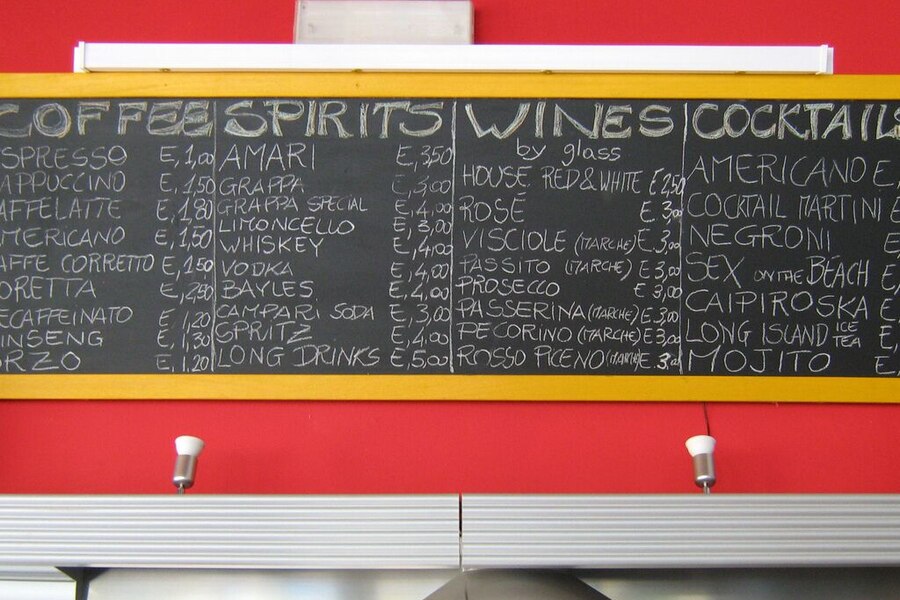 COFFEE
SPRESSO E,1,00
APPUCCINO E,1,50
AFFELATTE E,1,80
MERICANO E,1,50
AFFE CORRETTO E,1,50
ORETTA E,2,50
ECAFFEINATO E,1,20
INSENG E,1,30
RZO E,1.20
SPIRITS
AMARI E,3,50
GRAPPA E,3,00
GRAPPA SPECIAL E,4,00
LIMONCELLO E,3,00
WHISKEY E,4,00
VODKA E,4,00
BAYLES E,4,00
CAMPARI SODA E,3,00
SPRITZ E,4,00
LONG DRINKS E,5,00
WINES
by glass
HOUSE RED & WHITE E 2,50
ROSÉ E 3,00
VISCIOLE (MARCHE) E.3,00
PASSITO (MARCHE) E,3,00
PROSECCO E 3,00
PASSERINA (MARCHE) E.3.00
PECORINO (MARCHE) E 3,00
ROSSO PICENO (MARCHE) E.3,00
COCKTAILS
AMERICANO E,
COCKTAIL MARTINI E
NEGRONI E
SEX ON THE BEACH E,
CAIPIROSKA E,
LONG ISLAND ICE TEA E,
MOJITO E,